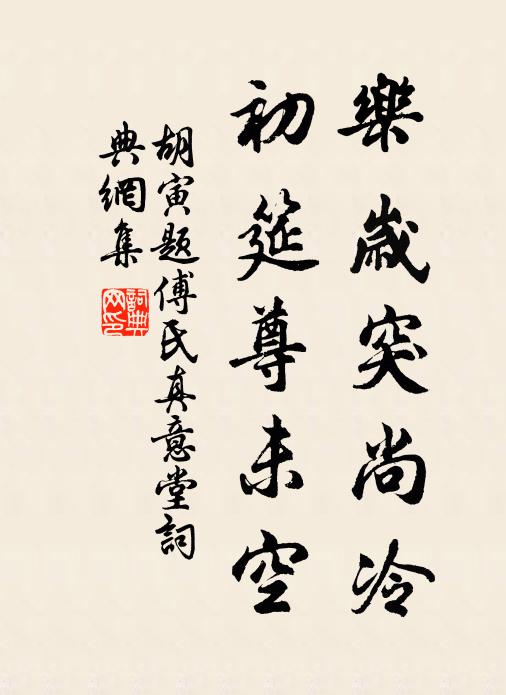 樂歲突尚冷
初筵尊未空
胡寅題傅氏真意堂詞
典網集
詞典网印